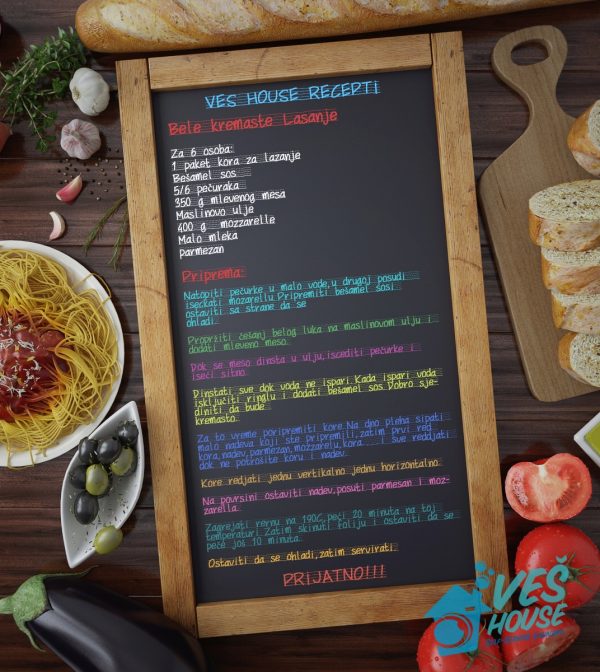 VES HOUSE RECEPTI
Bele kremaste Lasanje
Za 6 osoba:
1 paket kora za lazanje
Bešamel sos
5/6 pečuraka
350 g mlevenog mesa
Maslinovo ulje
400 g mozzarelle
Malo mleka
parmezan
Priprema:
Natopiti pečurke u malo vode,u drugoj posudi
iseckati mozarellu.Pripremiti bešamel sosi
ostaviti sa strane da se
ohladi.
Propržiti češanj belog luka na maslinovom ulju i
dodati mleveno meso.
Dok se meso dinsta u ulju,iscediti pečurke i
iseći sitno.
Dinstati sve dok voda ne ispari.Kada ispari voda
isključiti ringlu i dodati bešamel sos.Dobro sje-
diniti da bude
kremasto.
Za to vreme poripremiti kore.Na dno pleha sipati
malo nadeva koji ste pripremili,zatim prvi red
kora,nadev,parmezan,mozzarelu,kora......i sve reddjati
dok ne potrošite koru i nadev.
Kore redjati jednu vertikalno jednu horizontalno.
Na povrsini ostaviti nadev,posuti parmesan i moz-
zarella.
Zagrejati rernu na 190C,peći 20 minuta na toj
temperaturi.Zatim skinuti foliju i ostaviti da se
peče još 10 minuta.
Ostaviti da se ohladi,zatim servirati.
PRIJATNO!!!
VEŠ
HOUSE